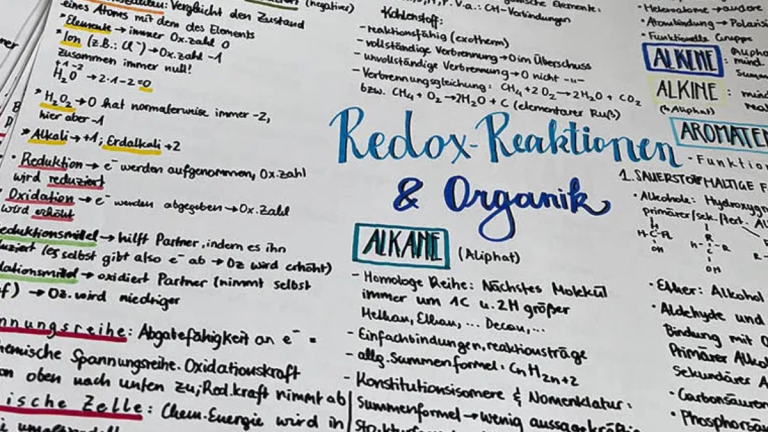 (negative)
Vergleicht den Zustand
eines Atoms mit dem des Elements
* Elemente → immer Ox.zahl 0
* Ion (z.B.: Cl⁻) → Ox.zahl -1
zusammen immer null!
+1 -2
H₂O → 2·1-2=0
* H₂O₂ → O hat normalerweise immer -2,
hier aber -1
* Alkali → +1; Erdalkali +2
· Reduktion → e⁻ werden aufgenommen, Ox.zahl
wird reduziert
· Oxidation → e⁻ werden abgegeben → Ox.zahl
wird erhöht
→ hilft Partner, indem es ihn
(es selbst gibt also e⁻ ab → Oz wird erhöht)
→ oxidiert Partner (nimmt selbst
→ Oz. wird niedriger
: Abgabefähigkeit an e⁻ =
Spannungsreihe. Oxidationskraft
oben nach unten zu, Red.kraft nimmt ab
Zelle: Chem. Energie wird in
CH-Verbindungen
Kohlenstoff:
- reaktionsfähig (exotherm)
- vollständige Verbrennung → O im Überschuss
- unvollständige Verbrennung → O nicht -"-
- Verbrennungsgleichung: CH₄ + 2 O₂ → 2H₂O + CO₂
bzw. CH₄ + O₂ → 2H₂O + C (elementarer Ruß)
Redox-Reaktionen
& Organik
ALKANE (Aliphat)
- Homologe Reihe: Nächstes Molekül
immer um 1C u. 2H größer
Methan, Ethan, ... Decan, ...
- Einfachbindungen, reaktionsträge
- allg. Summenformel: CnH2n+2
- Konstitutionsisomere & Nomenklatur:
Summenformel → wenig
· Heteroatome
· Atombindung → Polarisi
· Funktionelle Gruppe
ALKENE
mind.
Summe
ALKINE : mind
(Aliphat)
AROMATEN
· Funktion
1. SAUERSTOFFHALTIGE F
· Alkohole: Hydroxygr
primärer/sek./tert. Al
H R R
H-C-R H-C- R-
OH R
OH
· Ether: Alkohol
· Aldehyde und
Bindung mit O
Primärer Alko
Sekundärer A
· Carbonsäuren
· Phosphorsäu